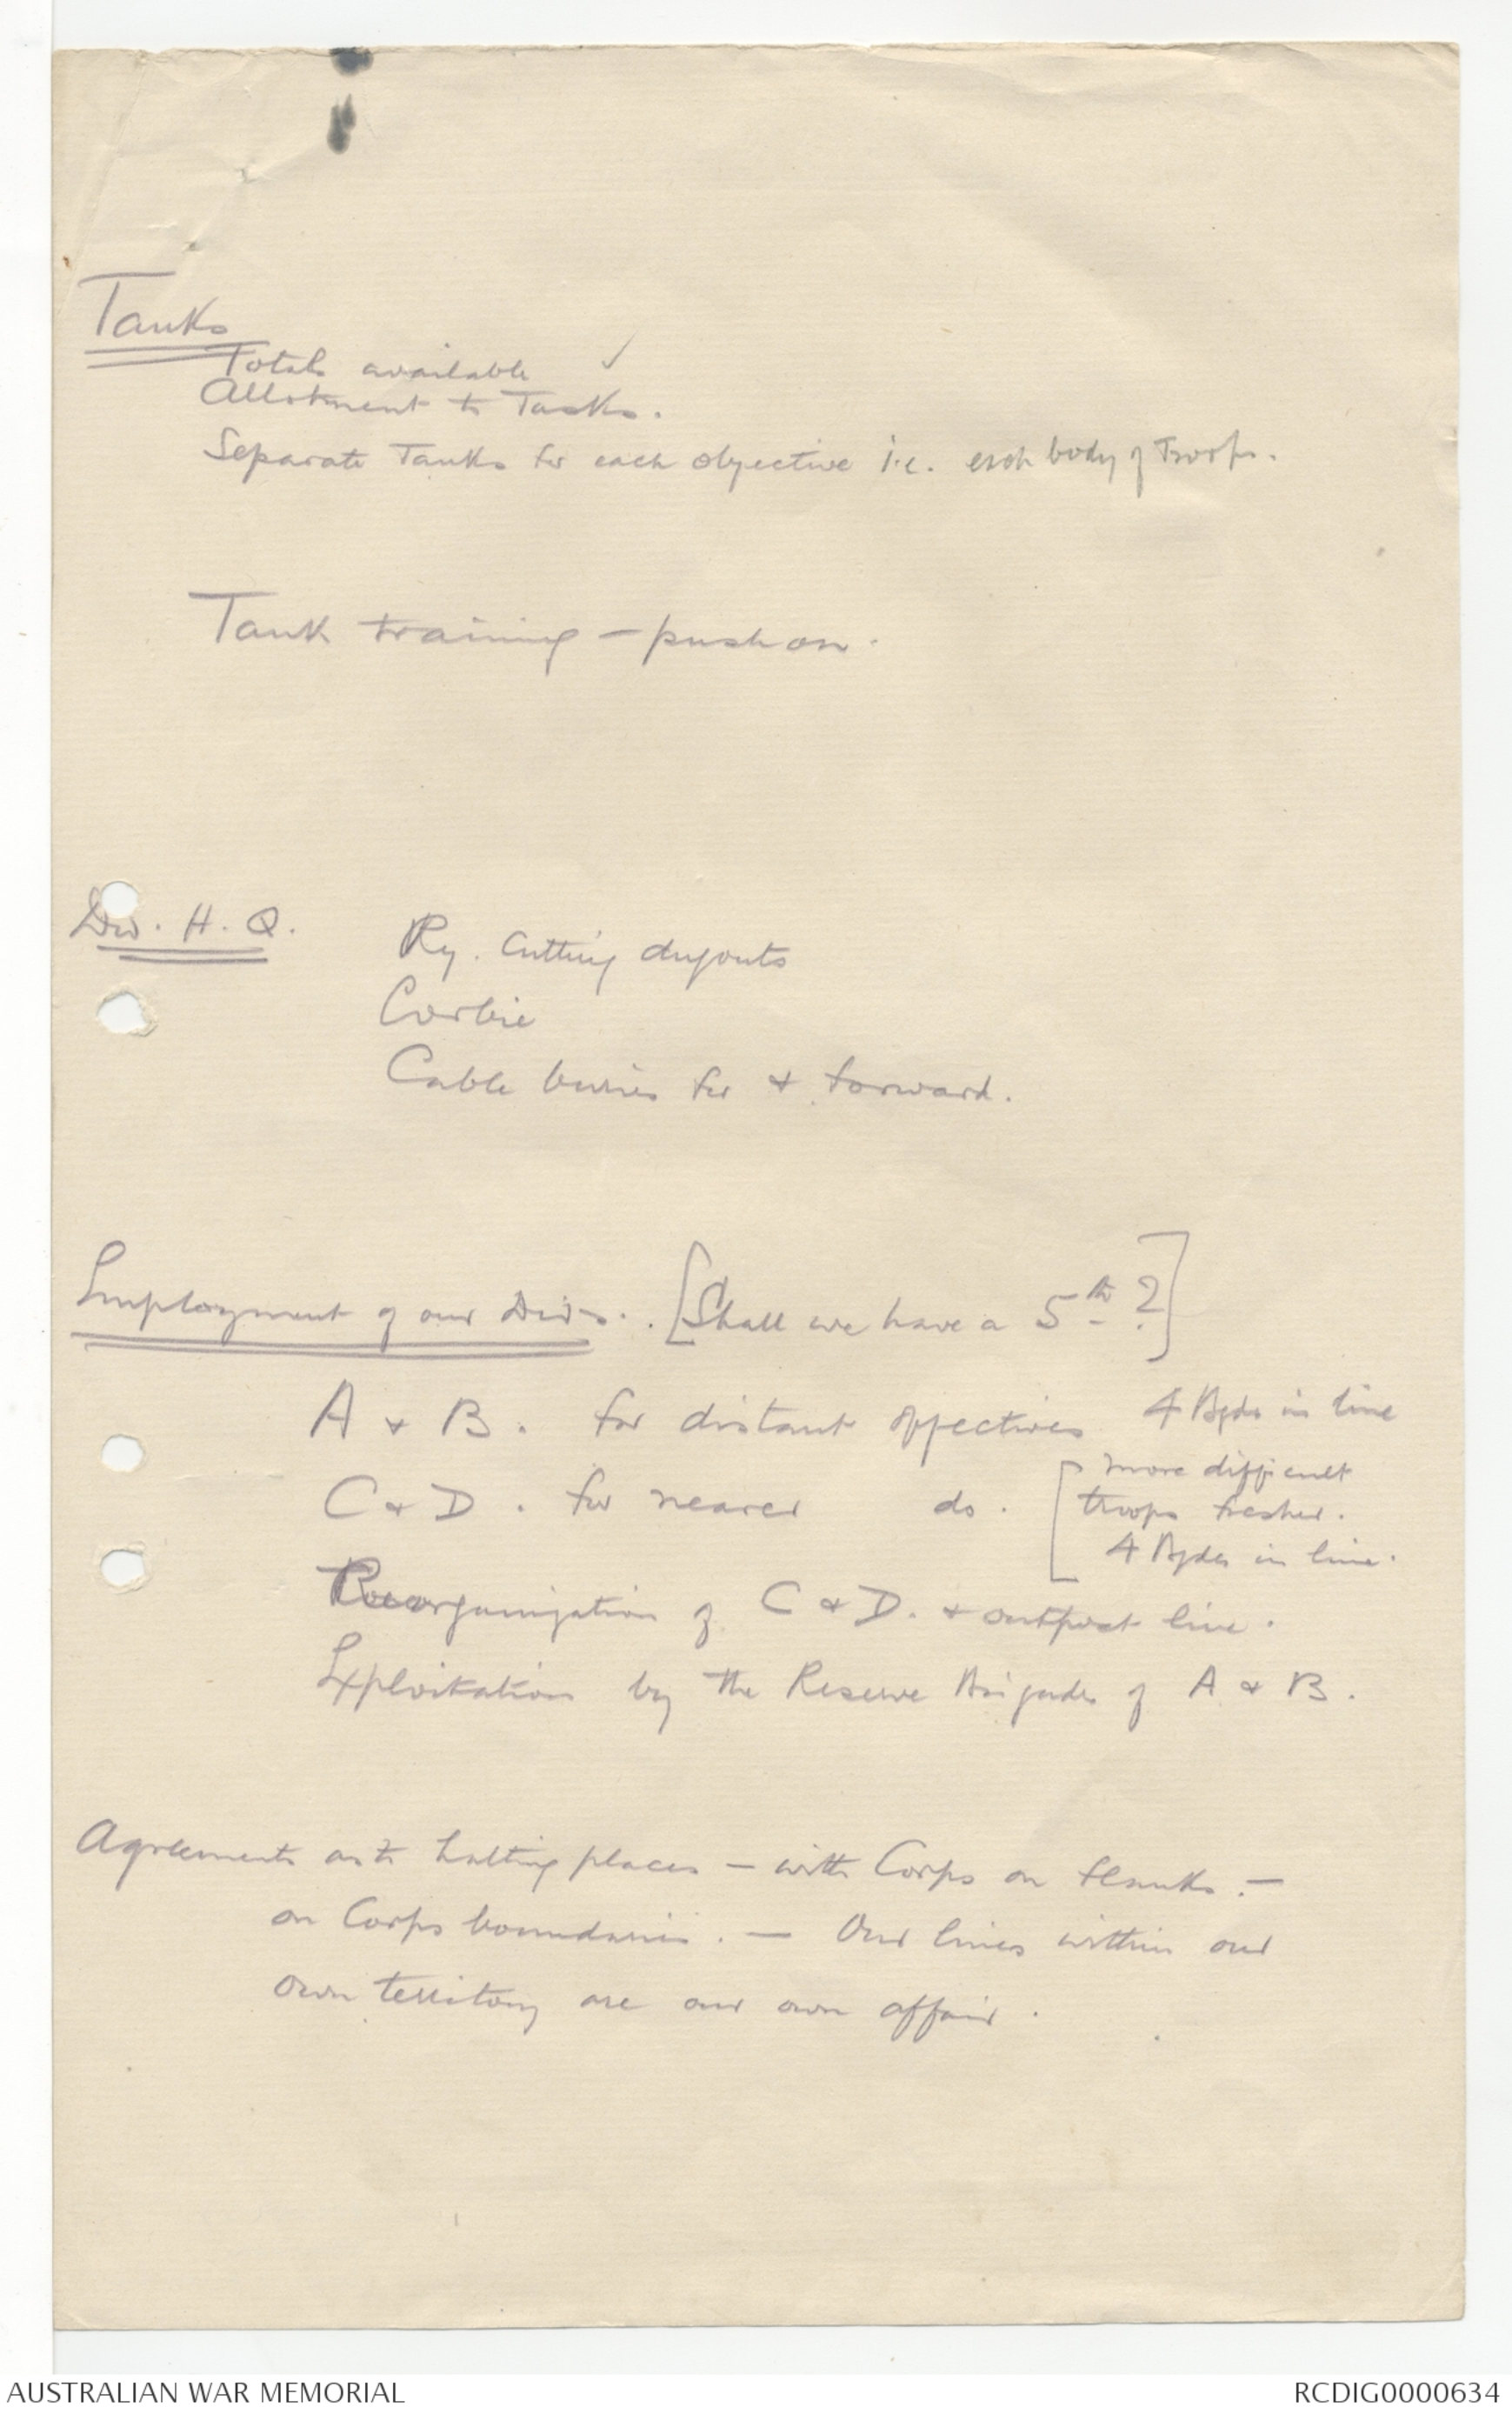 Tanks
Totals available ✓
Allotment to Tasks.
Separate Tanks for each objective i.e. each body of Troops.
Tank training - push on.
Div. H. Q.
Ry. Cutting dugouts
Corbie
Cable buries for & forward.
Employment of our Divs. . [Shall we have a 5th ?]
A & B. for distant objectives 4 Bgdes in line
C & D. for nearer do. [more difficult
troops fresher.
4 Bgdes in line.
Reorganization of C & D. & outpost line.
Exploitation by the Reserve Brigades of A & B.
Agreements as to halting places - with Corps on flanks. -
on Corps boundaries. - Our lines within our
own territory are our own affair.
AUSTRALIAN WAR MEMORIAL
RCDIG0000634